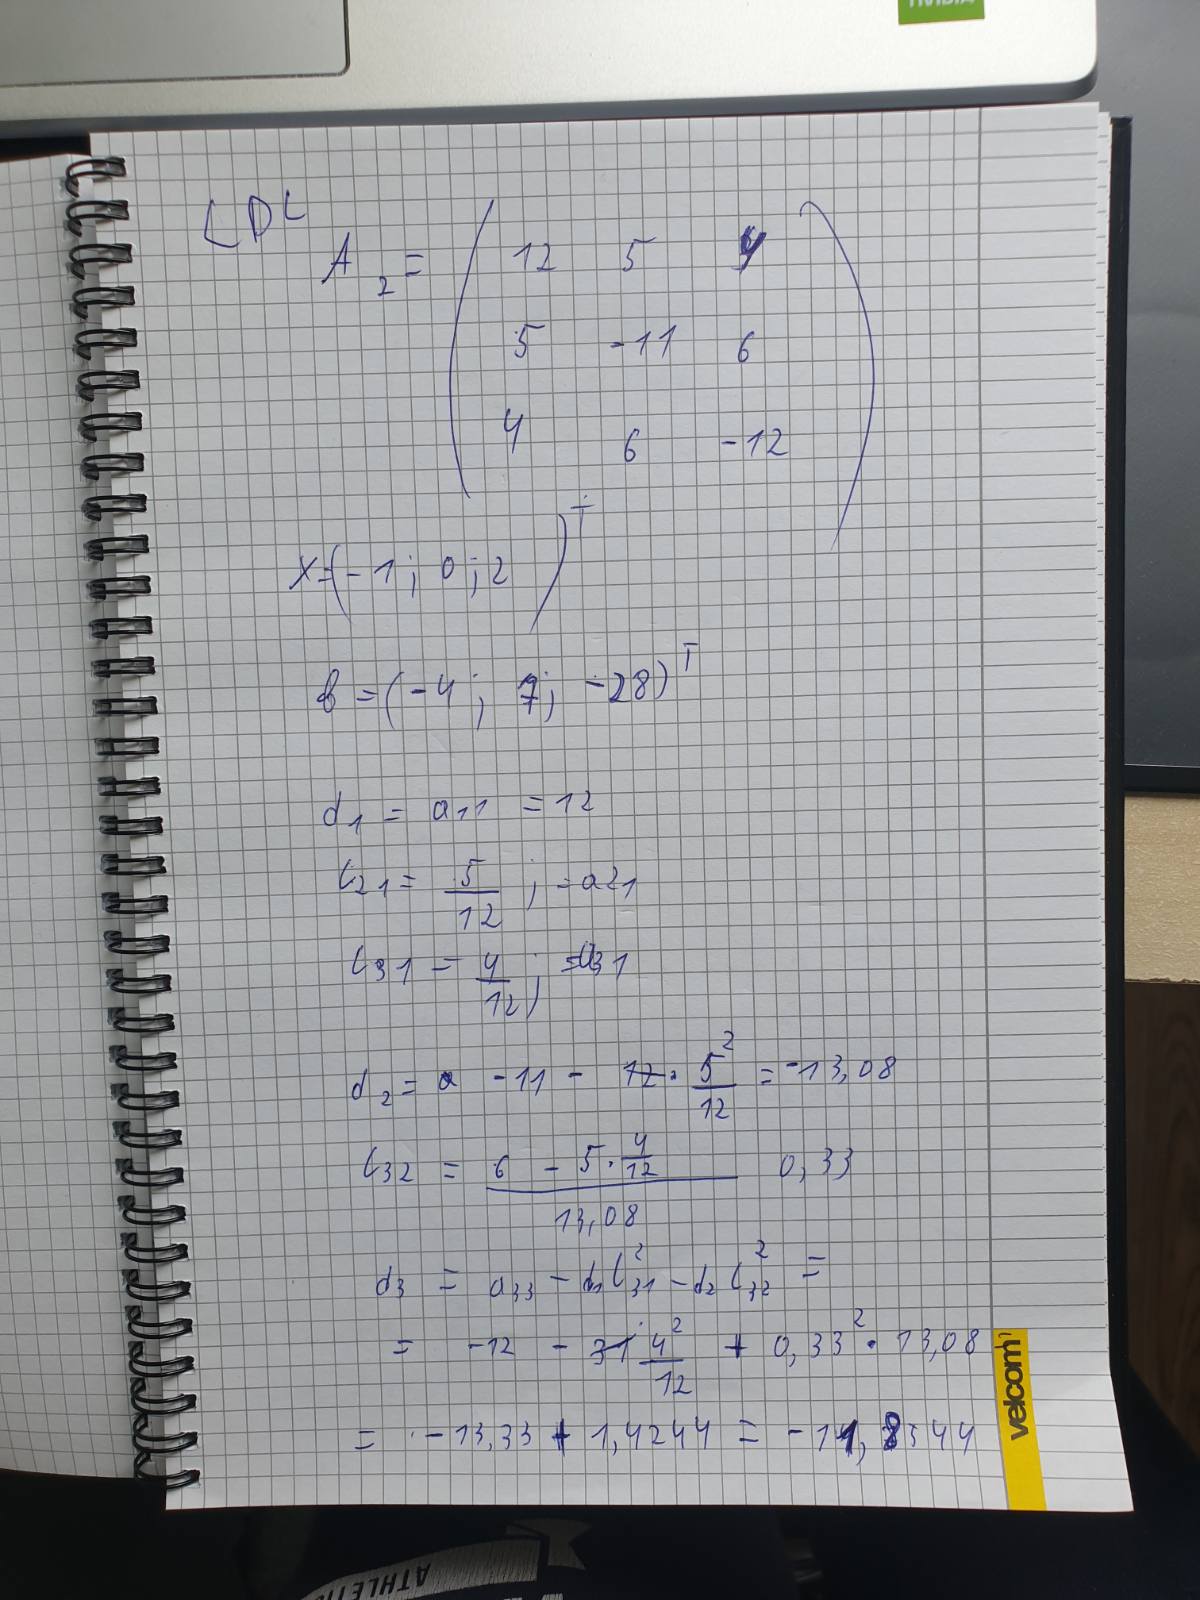 NVIDIA
LDL
A₂ = ( 12 5 4
5 -11 6
4 6 -12 )
X = (-1; 0; 2)ᵀ
b = (-4; 7; -28)ᵀ
d₁ = a₁₁ = 12
l₂₁ = 5/12 ; = a₂₁
l₃₁ = 4/12 ; = a₃₁
d₂ = -11 - 5²/12 = -13,08
l₃₂ = (6 - 5 · 4/12) / 13,08 0,33
d₃ = a₃₃ - d₁l²₃₁ - d₂l₃₂² =
= -12 - 4²/12 + 0,33² · 13,08
= -13,33 + 1,4244 = -11,8544
velcom
ATHLETI